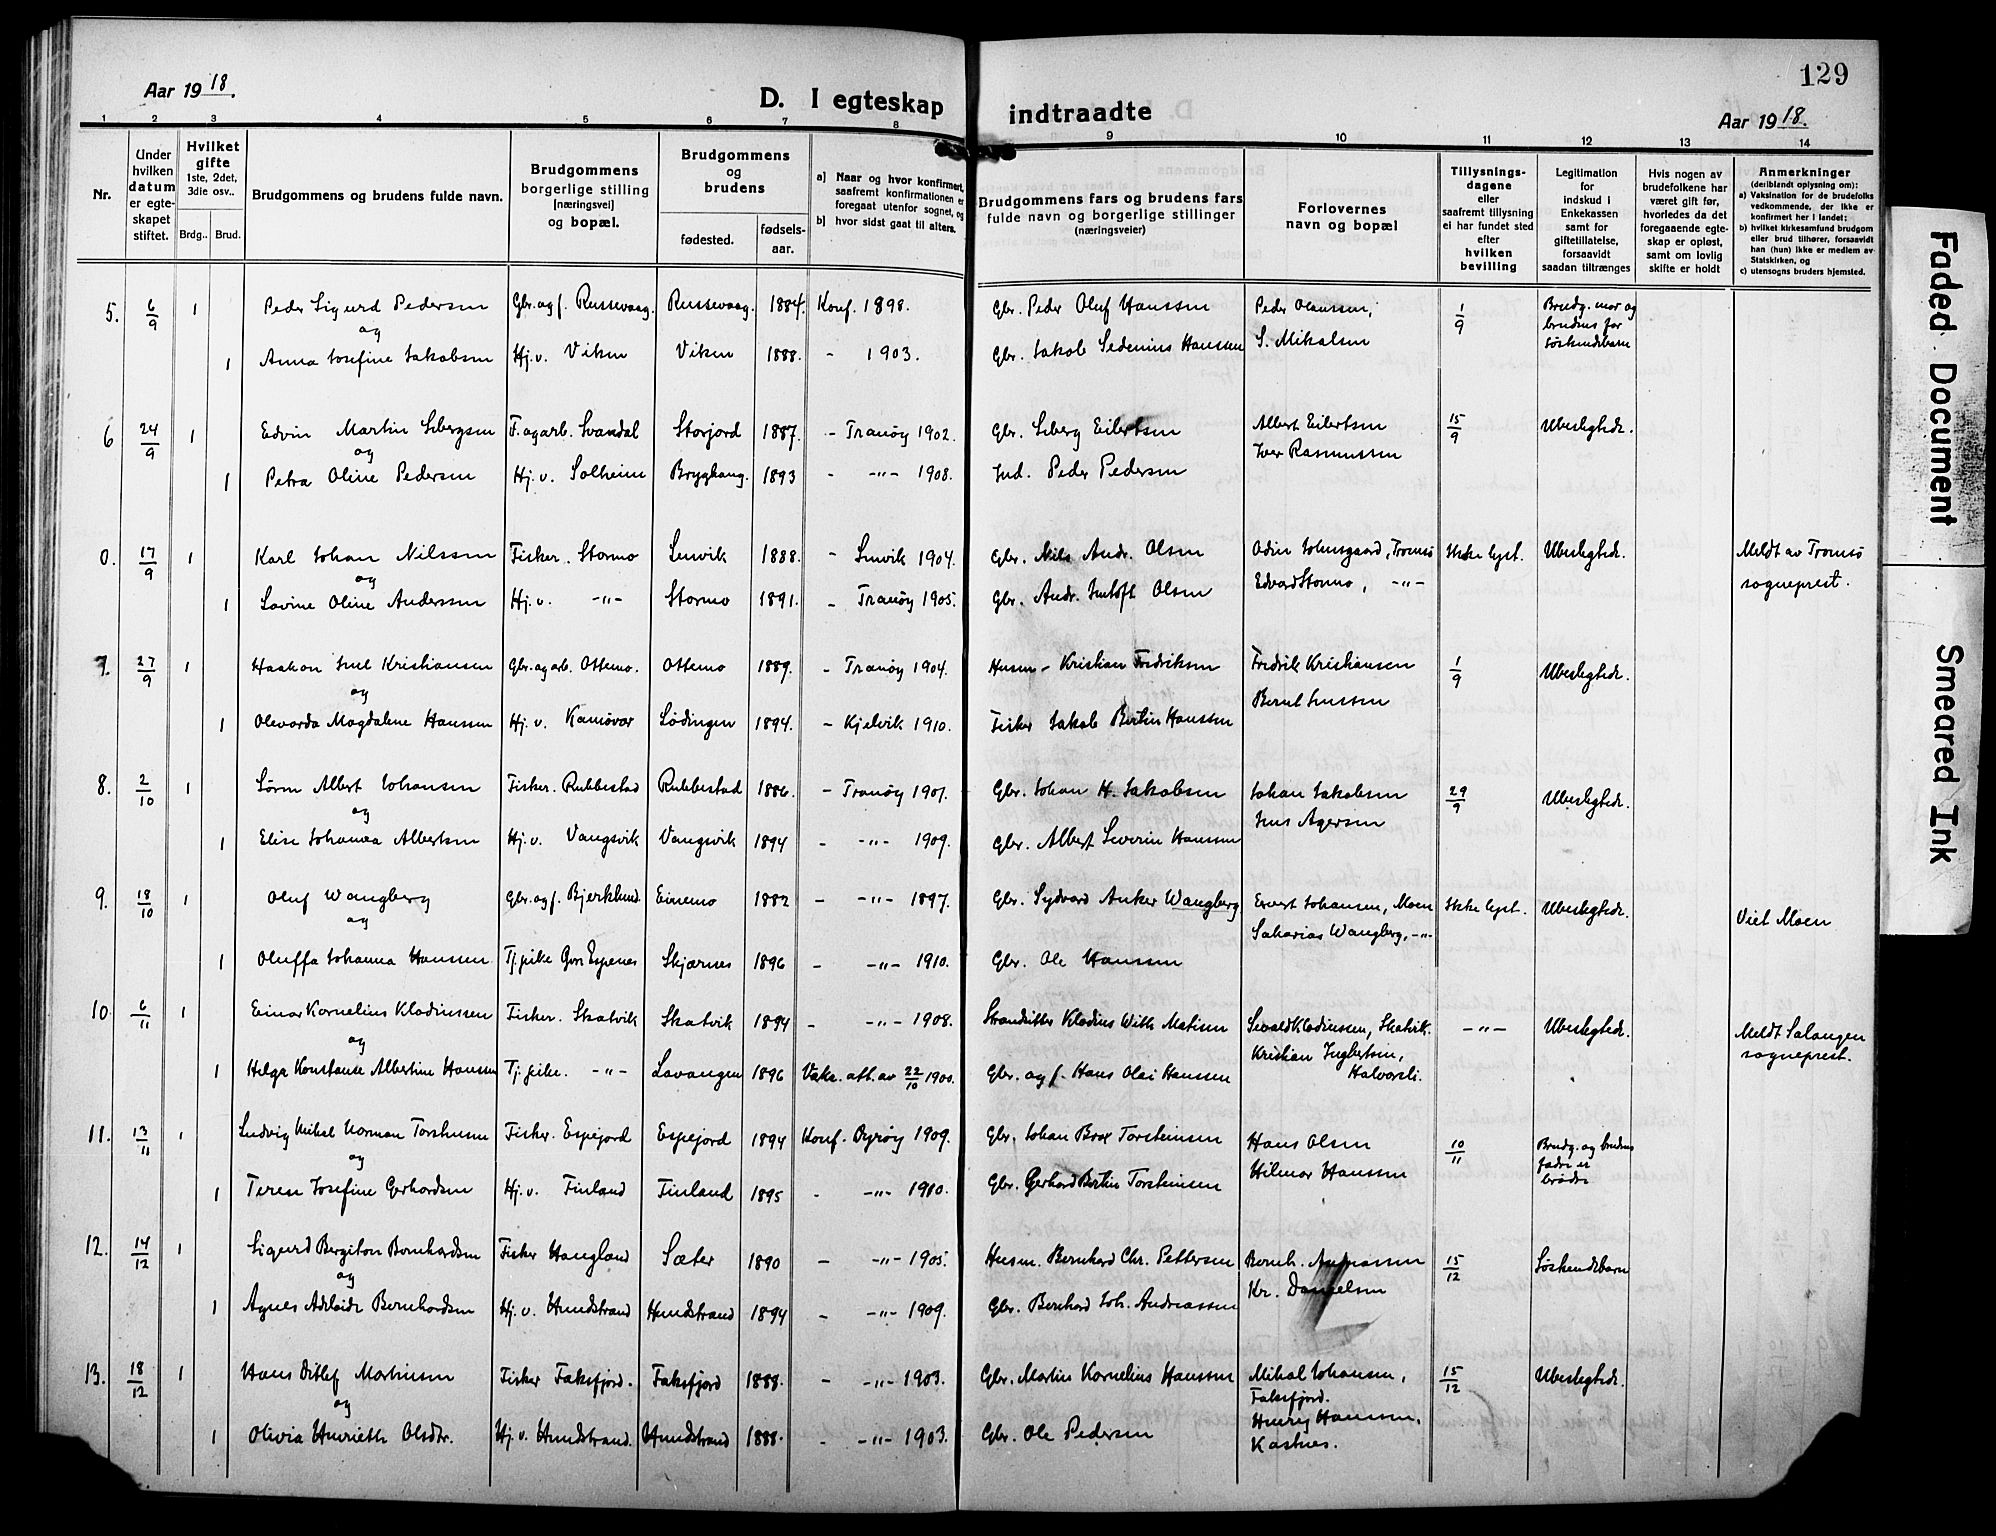 Aar 1918.
D. I egteskap
indtraadte
129
Aar 1918.
1 2 3 4 5 6 7 8 9 10 11 12 13 14
Nr.
Under hvilken datum er egteskapet stiftet.
Hvilket gifte 1ste, 2det, 3die osv..
Brdg..
Brud.
Brudgommens og brudens fulde navn.
Brudgommens borgerlige stilling [næringsvei] og bopæl.
Brudgommens og brudens
fødested.
fødsels-aar.
a] Naar og hvor konfirmert, saafremt konfirmationen er foregaat utenfor sognet, og
b] hvor sidst gaat til alters.
Brudgommens fars og brudens fars fulde navn og borgerlige stillinger (næringsveier)
Forlovernes navn og bopæl
Tillysnings-dagene eller saafremt tillysning ei har fundet sted efter hvilken bevilling
Legitimation for indskud i Enkekassen samt for giftetillatelse, forsaavidt saadan tiltrænges
Hvis nogen av brudefolkene har været gift før, hvorledes da det foregaaende egteskap er opløst, samt om lovlig skifte er holdt
Anmerkninger (deriblandt oplysning om): a) Vaksination for de brudefolks vedkommende, der ikke er konfirmert her i landet; b) hvilket kirkesamfund brudgom eller brud tilhører, forsaavidt han (hun) ikke er medlem av Statskirken, og c) utensogns bruders hjemsted.
5. 6/9 1 Peder Sigurd Pedersen Gbr. og f. Russevaag. Russevaag. 1884. Konf. 1898. Gbr. Peder Oluf Hanssen Peder Olaussen, 1/9 Brudg. mor og
og brudens far
1 Anna Josefine Jakobsen Hj. v. Viken Viken 1888. - 1903. Gbr. Jakob Sedenius Hanssen S. Mikalsen søskendebarn
6 24/9 1 Edvin Martin Sebergsen F. og arb. Svandal Storjord 1887. - Tranøy 1902. Gbr. Seberg Eilertsen Albert Eilertsen 15/9 Ubeslegtede.
og Iver Rasmussen
1 Petra Oline Pedersen Hj. v. Solheim Bryghaug. 1893 - -"- 1908. Ind. Peder Pedersen
0. 17/9 1 Karl Johan Nilssen Fisker. Stormo Lenvik 1888. - Lenvik 1904. Gbr. Nils Andr. Olsen Odin Johnsgaard, Tromsö Ikke lyst. Ubeslegtede. Meldt av Tromsö
og Edvard Stormo, -"- sogneprest.
1 Lovine Oline Anderssen Hj. v. -"- Stormo 1891. - Tranøy 1905. Gbr. Andr. Jentoft Olsen
7. 27/9 1 Haakon Juul Kristiansen Gbr. og arb. Ottemo. Ottemo 1889. - Tranøy 1904. Husm - Kristian Fredriksen Fredrik Kristiansen 1/9 Ubeslegtede.
og Bernt Jenssen
1 Olevarda Magdalene Hanssen Hj. v. Kamøvær Lødingen 1894. - Kjelvik 1910. Fisker Jakob Bertin Hanssen
8. 2/10 1 Søren Albert Johansen Fisker. Rubbestad Rubbestad 1886. - Tranøy 1901. Gbr. Johan H. Jakobsen Johan Jakobsen 29/9 Ubeslegtede.
og Jens Agersen
1 Elise Johanna Albertsen Hj. v. Vangsvik Vangsvik 1894 - -"- 1909. Gbr. Albert Severin Hanssen
9. 18/10 1 Oluf Wangberg Gbr. og f. Bjerklund. Einemo 1882 - -"- 1897. Gbr. Sydvard Anker Wangberg. Evert Johansen, Moen Ikke lyst. Ubeslegtede. Viet Moen
og Sakarias Wangberg, -"-
1 Oluffa Johanna Hanssen. Tj. pike Gvr. Espenes Skjærnes 1896 - -"- 1910. Gbr. Ole Hanssen
10. 6/11 1 Einar Kornelius Kladiussen Fisker. Skatvik Skatvik 1894 - -"- 1908. Strandsitter Kladius With Matisen Sevald Kladiussen, Skatvik. -"- Ubeslegtede. Meldt Salangen
og Kristian Ingbertsen, Halvorsli. sogneprest.
1 Helga Konstanse Albertine Hanssen Tj. pike. -"- Lavangen 1896 Vaks. att. av 22/10 1900. Gbr. og f. Hans Olai Hanssen
11. 13/11 1 Ludvig Mikal Norman Torstensen Fisker. Espejord Espejord 1894 Konf. Dyrøy 1909. Gbr. Johan Brox Torsteinsen Hans Olsen 10/11 Brudg. og brudens
og Hilmar Hanssen fædre er
1 Terese Josefine Gerhardsen Hj. v. Finland Finland 1895 - -"- 1910. Gbr. Gerhard Bertin Torsteinsen brødre
12. 14/12 1 Sigurd Bergiton Bernhardsen Fisker Haugland Sæter 1890 - -"- 1905. Husm. Bernhard Chr. Pettersen Bernh. Andreassen 15/12 Søskendebarn
og Kr. Danielsen
1 Agnes Adelaide Bernhardsen Hj. v. Hundstrand Hundstrand 1894 - -"- 1909. Gbr. Bernhard Joh. Andreassen
13. 18/12 1 Hans Ditlef Martinsen Fisker Faksfjord. Faksfjord 1888. - -"- 1903. Gbr. Martin Kornelius Hanssen Mikal Johansen, Faksfjord. 15/12 Ubeslegtede.
og Henry Hanssen, Kastnes.
1 Olivia Henriette Olsdtr. Hj. v. Hundstrand. Hundstrand 1888. - -"- 1903. Gbr. Ole Pedersen
Faded Document
Smeared Ink